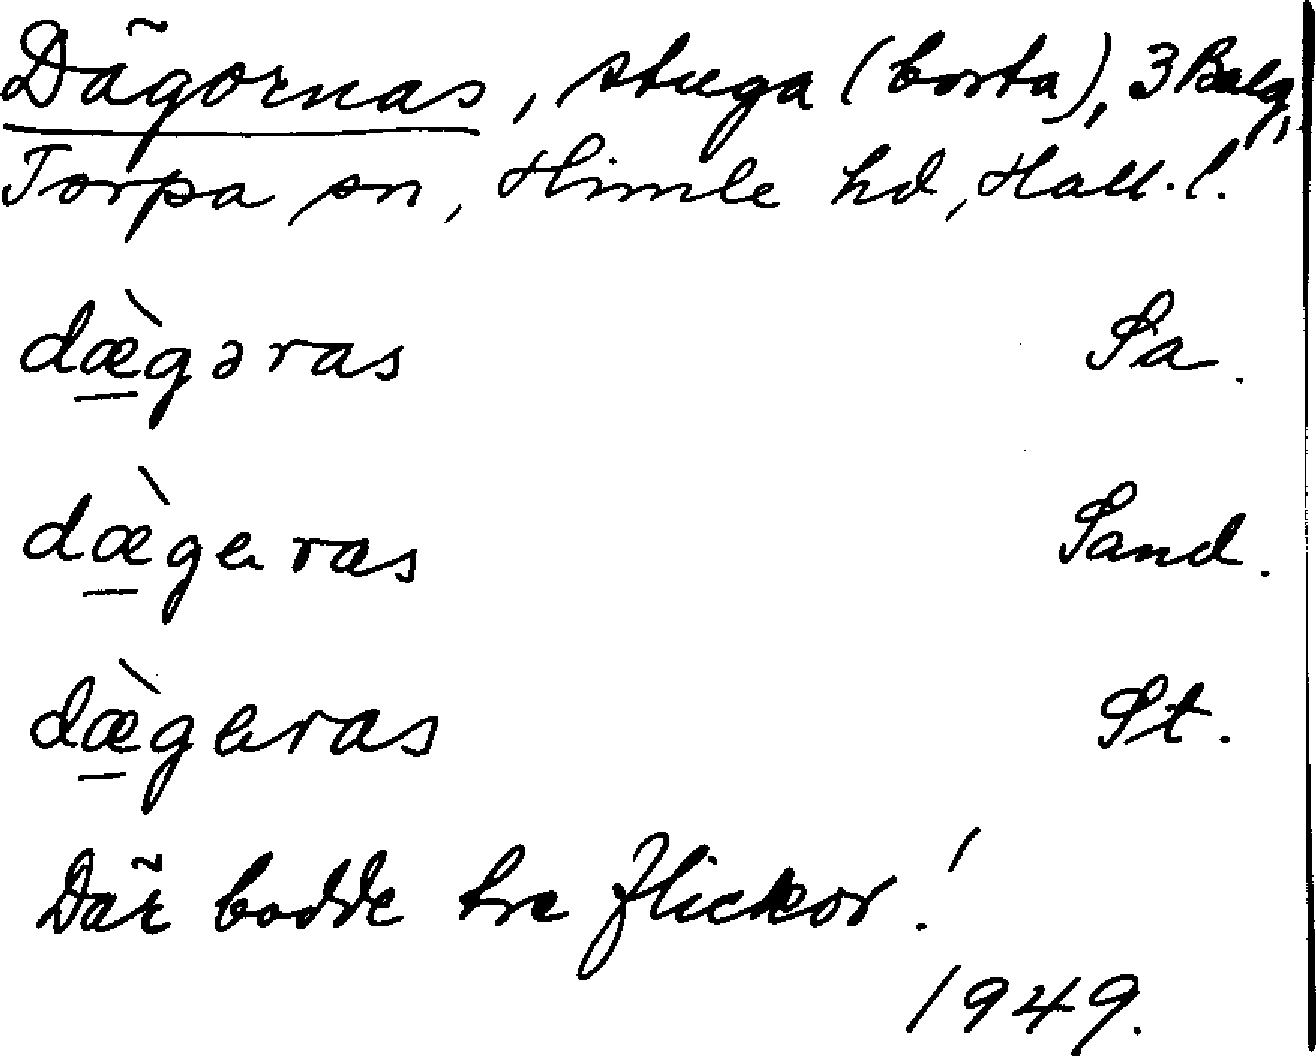 Dägornas, stuga (borta), 3 Balg,
Torpa sn, Himle hd, Hall. l.
dæ̀gəras Sa.
dæ̀gɐras Sand.
dæ̀gɐras St.
Där bodde tre flickor!
1949.